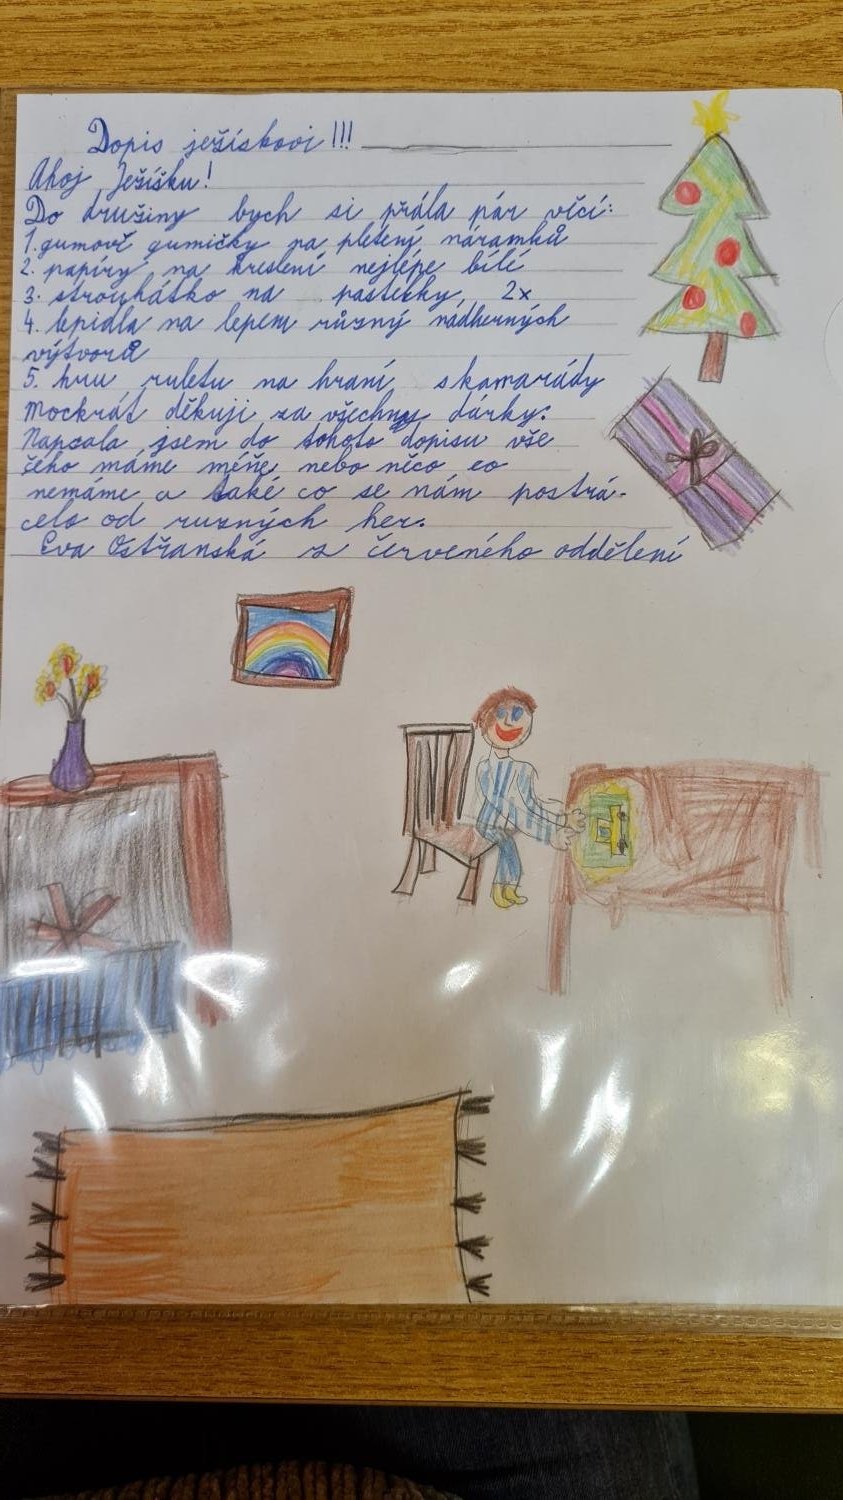 Dopis ježískovi!!!
Ahoj Ježíšku!
Do družiny bych si přála pár věcí:
1. gumové gumičky na pletený náramků
2. papíry na kreslení nejlépe bílé
3. strouhátko na pastelky, 2x
4. lepidla na lepem různý nádherných
výtvorů
5. hru ruletu na hraní skamarády
Mockrát děkuji za všechny dárky.
Napsala jsem do tohoto dopisu vše
čeho máme méňe nebo něco co
nemáme a také co se nám postrá-
celo od ruzných her.
Eva Ostřanská z červeného oddělení